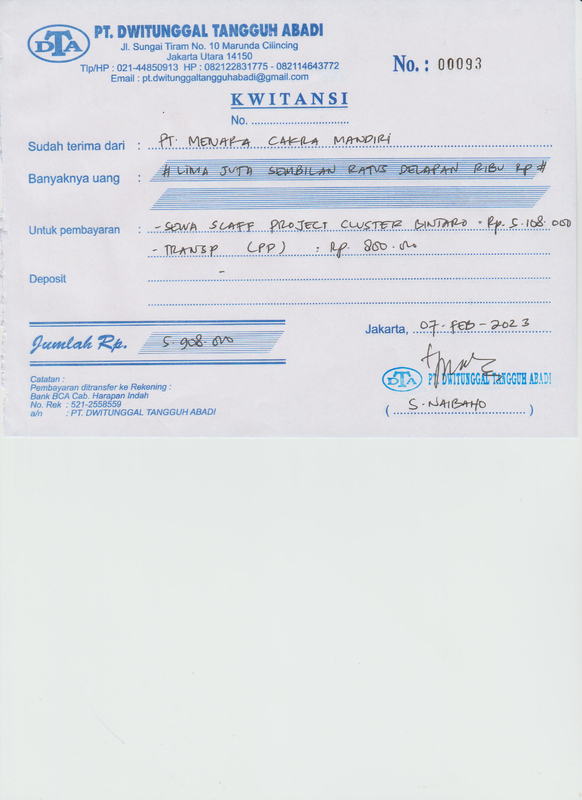 DTA
PT. DWITUNGGAL TANGGUH ABADI
Jl. Sungai Tiram No. 10 Marunda Cilincing
Jakarta Utara 14150
Tlp/HP : 021-44850913 HP : 082122831775 - 082114643772
Email : pt.dwitunggaltangguhabadi@gmail.com
No. : 00093
KWITANSI
No. ............................
Sudah terima dari : PT. MENARA CAKRA MANDIRI
Banyaknya uang : # LIMA JUTA SEMBILAN RATUS DELAPAN RIBU RP #
Untuk pembayaran : - SEWA SCAFF PROJECT CLUSTER BINTARO = Rp. 5.108.000
- TRANSP (PP) : Rp. 800.000
Deposit -
Jumlah Rp. 5.908.000
Jakarta, 07-FEB-2023
Catatan :
Pembayaran ditransfer ke Rekening :
Bank BCA Cab. Harapan Indah
No. Rek : 521-2558559
a/n : PT. DWITUNGGAL TANGGUH ABADI
DTA PT DWITUNGGAL TANGGUH ABADI
( S. NAIBAHO )